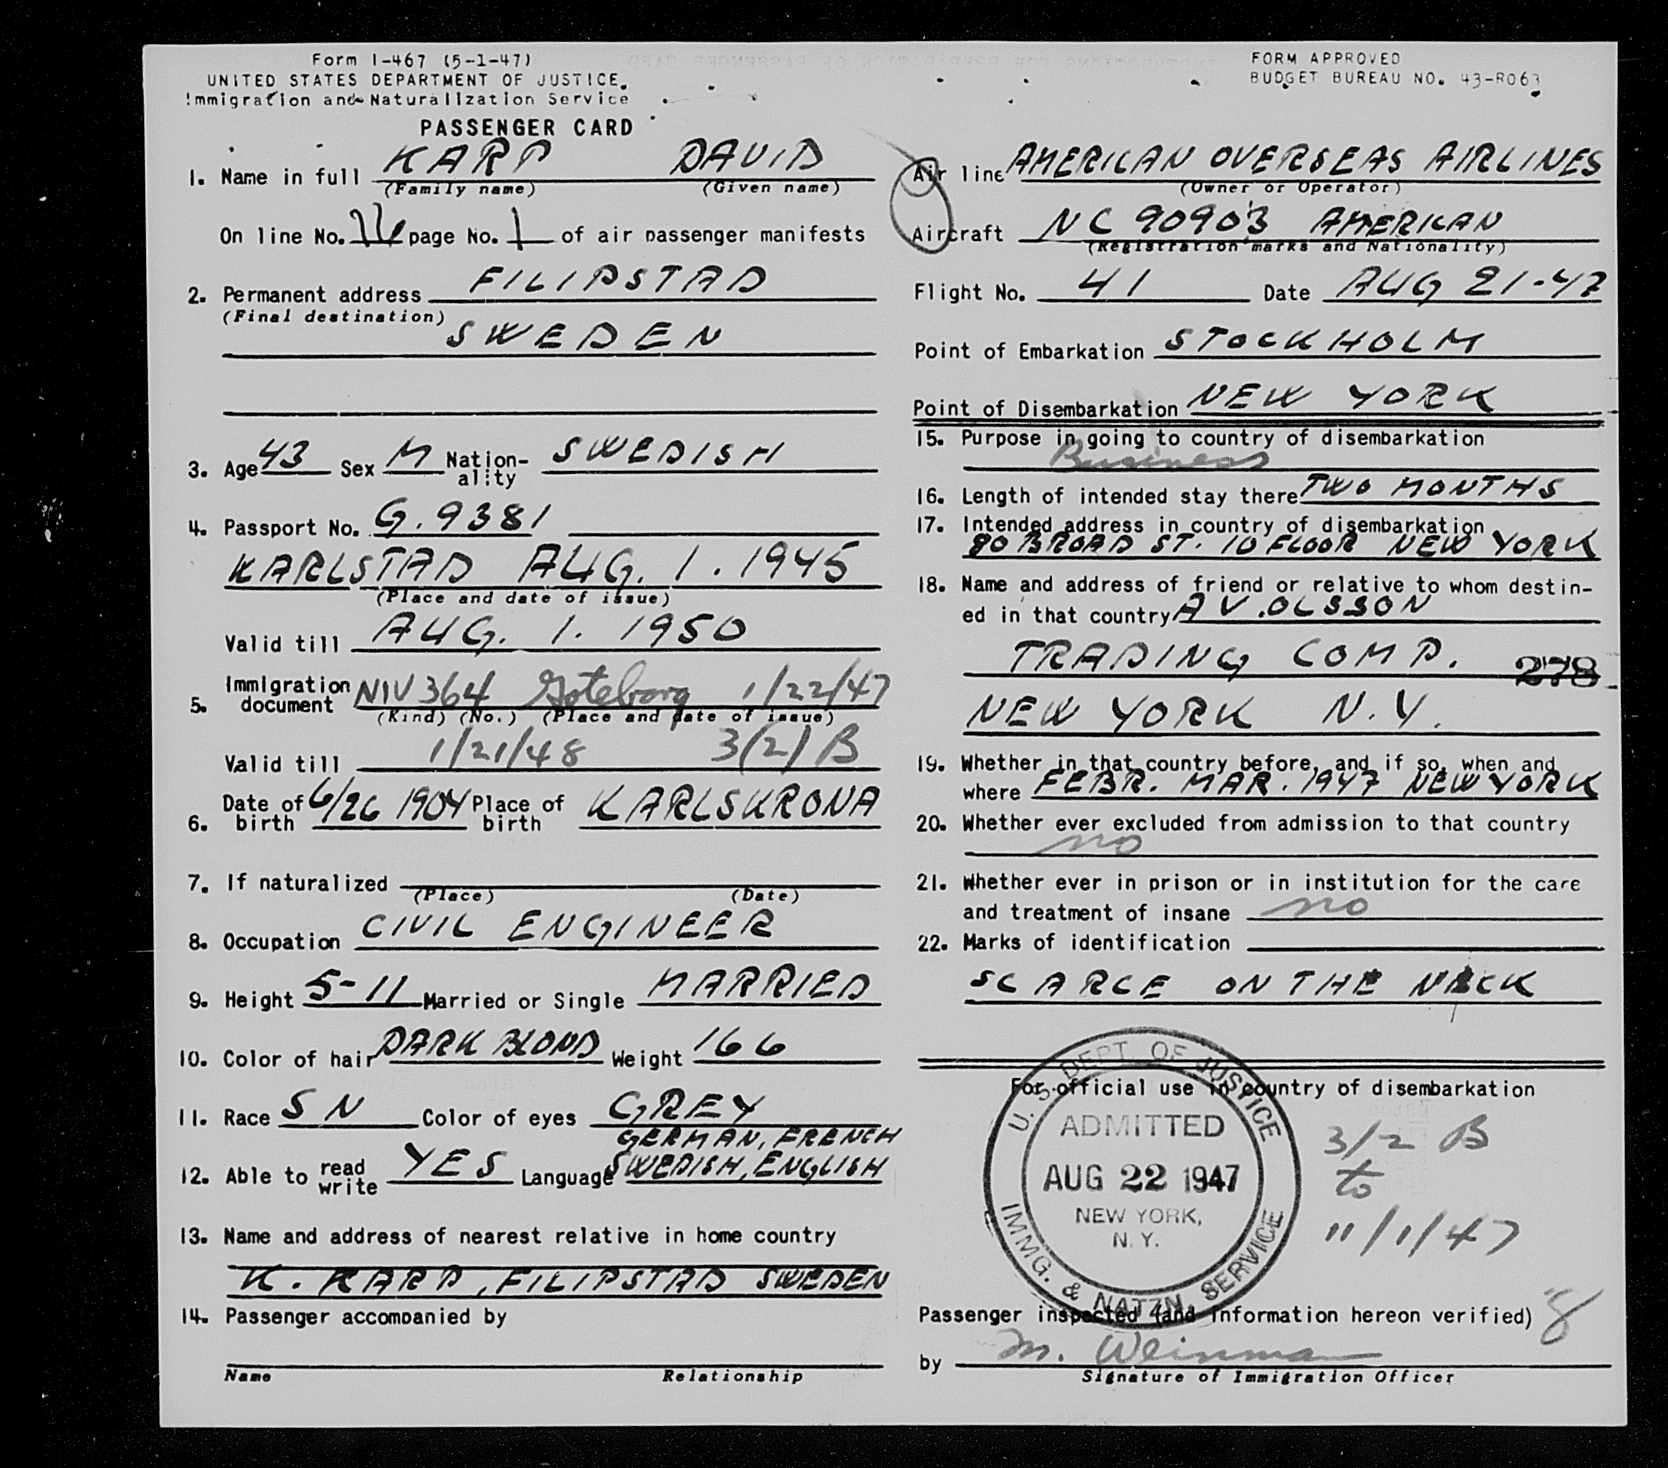 Form I-467 (5-1-47)
UNITED STATES DEPARTMENT OF JUSTICE
Immigration and Naturalization Service
PASSENGER CARD
1. Name in full KARP DAVID
(Family name) (Given name)
On line No. 16 page No. 1 of air passenger manifests
2. Permanent address FILIPSTAD
(Final destination)
SWEDEN
3. Age 43 Sex M Nation-ality SWEDISH
4. Passport No. G.9381
KARLSTAD AUG. 1. 1945
(Place and date of issue)
Valid till AUG. 1. 1950
5. Immigration document NIV 364 Goteborg 1/22/47
(Kind) (No.) (Place and date of issue)
Valid till 1/21/48 3(2)B
6. Date of birth 6/26 1904 Place of birth KARLSKRONA
7. If naturalized
(Place) (Date)
8. Occupation CIVIL ENGINEER
9. Height 5-11 Married or Single MARRIED
10. Color of hair DARK BLOND Weight 166
11. Race SN Color of eyes GREY
GERMAN, FRENCH
12. Able to read write YES Language SWEDISH, ENGLISH
13. Name and address of nearest relative in home country
K. KARP, FILIPSTAD SWEDEN
14. Passenger accompanied by
Name Relationship
FORM APPROVED
BUDGET BUREAU NO. 43-R063
Air line AMERICAN OVERSEAS AIRLINES
(Owner or Operator)
Aircraft NC 90903 AMERICAN
(Registration marks and Nationality)
Flight No. 41 Date AUG 21-47
Point of Embarkation STOCKHOLM
Point of Disembarkation NEW YORK
15. Purpose in going to country of disembarkation
Business
16. Length of intended stay there TWO MONTHS
17. Intended address in country of disembarkation
80 BROAD ST. 10 FLOOR NEW YORK
18. Name and address of friend or relative to whom destin-
ed in that country A V. OLSSON
TRADING COMP. 278
NEW YORK N.Y.
19. Whether in that country before, and if so, when and
where FEBR. MAR. 1947 NEW YORK
20. Whether ever excluded from admission to that country
no
21. Whether ever in prison or in institution for the care
and treatment of insane no
22. Marks of identification
SCARCE ON THE NECK
For official use in country of disembarkation
U. S. DEPT. OF JUSTICE
ADMITTED
AUG 22 1947
NEW YORK,
N.Y.
IMMG. & NATZN. SERVICE
3/2 B
to
11/1/47
Passenger inspected (and information hereon verified)
by M. Weinman
Signature of Immigration Officer